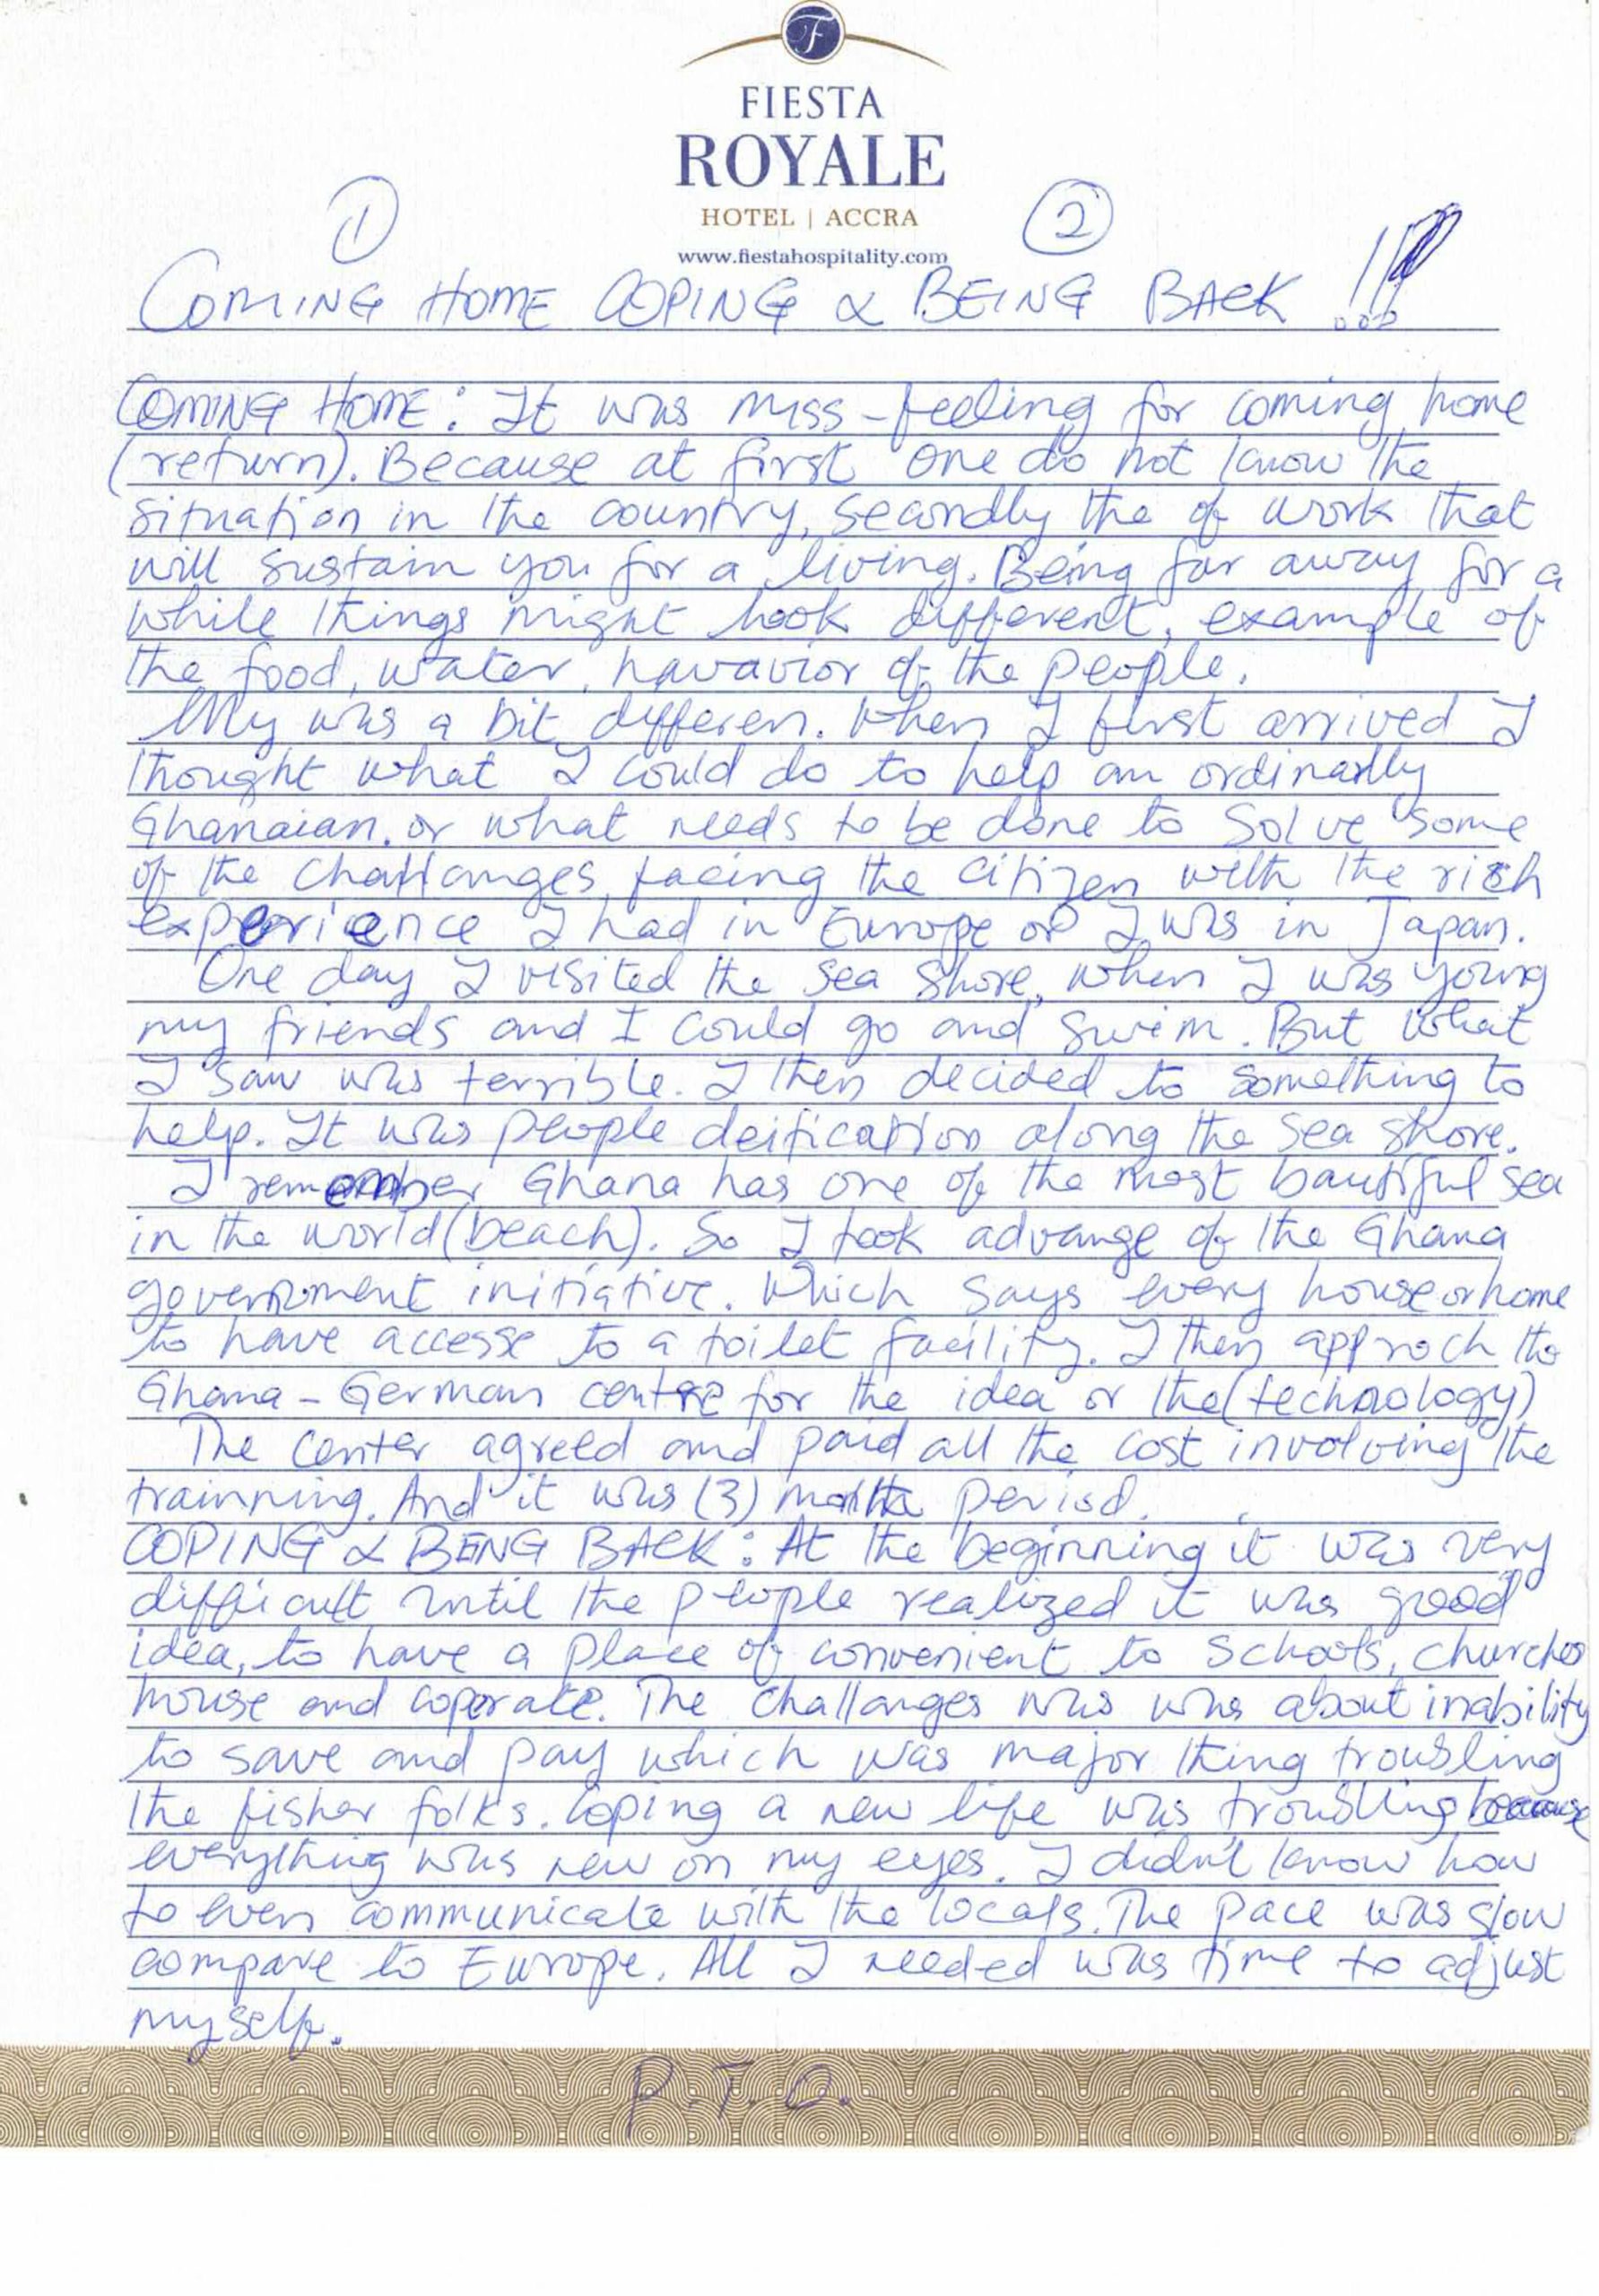 F
FIESTA
ROYALE
HOTEL | ACCRA
www.fiestahospitality.com
① ②
COMING HOME COPING & BEING BACK !!!
COMING HOME: It was miss-feeling for coming home
(return). Because at first one do not know the
situation in the country, secondly the of work that
will sustain you for a living. Being far away for a
while things might look different, example of
the food, water, havavior of the people.
My was a bit differen. When I first arrived I
thought what I could do to help an ordinarlly
Ghanaian. or what needs to be done to solve some
of the challanges facing the citizen with the rich
experience I had in Europe or I was in Japan.
One day I visited the sea shore, when I was young
my friends and I could go and swim. But what
I saw was terrible. I then decided to something to
help. It was people deification along the sea shore.
I remember Ghana has one of the most bautiful sea
in the world (beach). So I took advange of the Ghana
government initiative. Which says every house or home
to have accesse to a toilet facility. I then approch the
Ghana-German centre for the idea or the (technology)
The center agreed and paid all the cost involving the
trainning. And it was (3) months period.
COPING & BEING BACK: At the beginning it was very
difficult until the people realized it was good
idea, to have a place of convenient to schools, churches
house and coporate. The challanges was was about inability
to save and pay which was major thing troubling
the fisher folks. Coping a new life was troubling because
everything was new on my eyes. I didn't know how
to even communicate with the locals. The pace was slow
compare to Europe. All I needed was time to adjust
myself.
P.T.O.